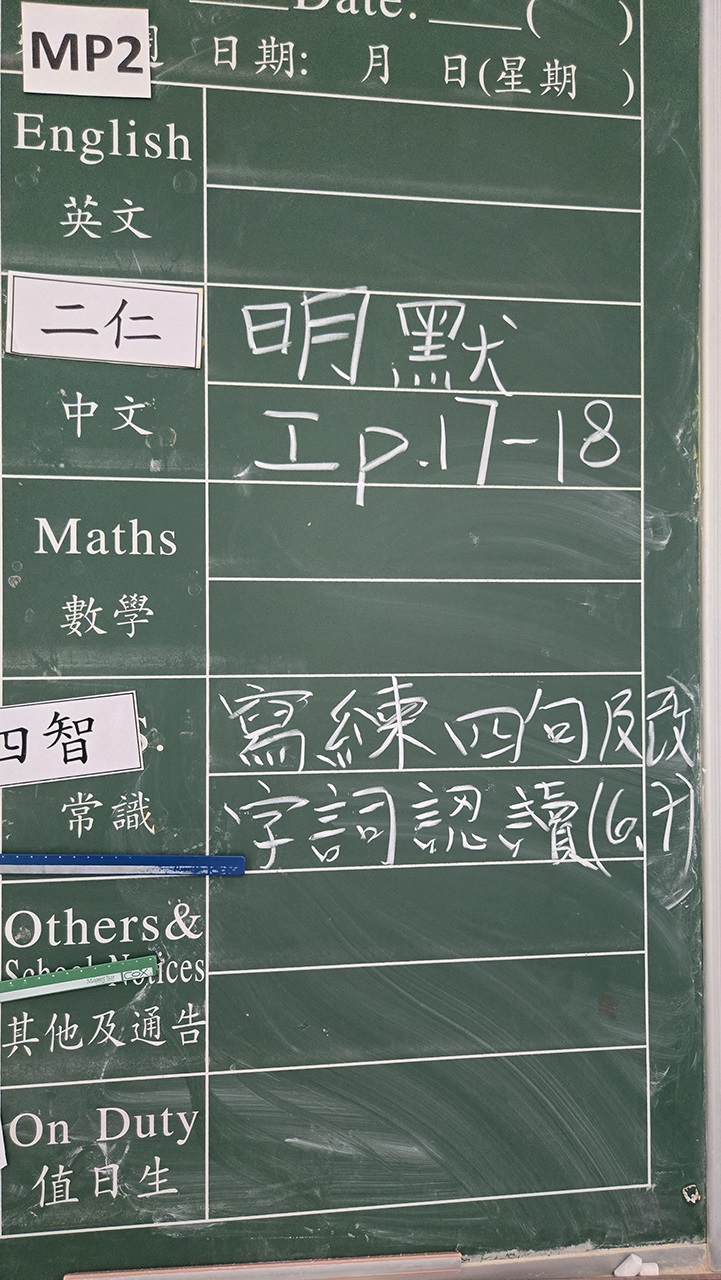 Date: ( )
MP2
日期: 月 日(星期 )
English
英文
二仁
明默
中文
工p.17-18
Maths
數學
四智
S.
寫練四句及改
常識
字詞認讀(6,7)
Others&
School Notices
其他及通告
On Duty
值日生